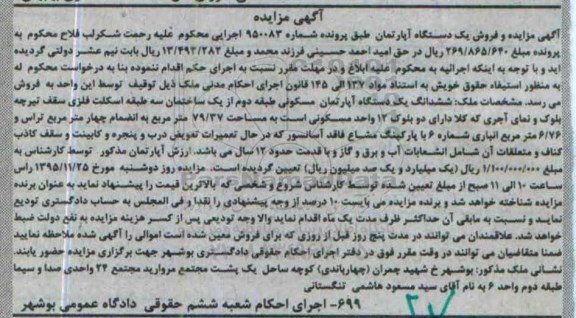 آگهی مزایده
آگهی مزایده و فروش یک دستگاه آپارتمان طبق پرونده شماره ۹۵۰۰۸۳ اجرایی محکوم علیه رحمت شکرلب فلاح محکوم به
پرونده مبلغ ۲۶۹/۸۶۵/۶۴۰ ریال در حق امید احمد حسینی فرزند محمد و مبلغ ۱۳/۴۹۳/۲۸۲ ریال بابت نیم عشر دولتی گردیده
اید و با توجه به اینکه اجرائیه به محکوم علیه ابلاغ و در مهلت مقرر نسبت به اجرای حکم اقدام ننموده بنا به درخواست محکوم له
به منظور استیفاء حقوق خویش به استناد مواد ۱۳۷ الی ۱۴۵ قانون اجرای احکام مدنی ملک ذیل توقیف توسط این واحد به فروش
می رسد. مشخصات ملک: ششدانگ یک دستگاه آپارتمان مسکونی طبقه دوم از یک ساختمان سه طبقه اسکلت فلزی سقف تیرچه
بلوک و نمای آجری که کلا دارای دو بلوک ۱۲ واحد مسکونی است به مساحت ۷۹/۳۷ متر مربع به انضمام چهار متر مربع تراس و
۶/۷۶ متر مربع انباری شماره ۶ با پارکینگ مشاع فاقد آسانسور که در حال تعمیرات تعویض درب و پنجره و کابینت و سقف کاذب
کناف و متعلقات آن شامل انشعابات آب و برق و گاز و با قدمت حدود ۱۲ سال می باشد. ارزش آپارتمان مذکور توسط کارشناس به
مبلغ ۱/۱۰۰/۰۰۰/۰۰۰ ریال (یک میلیارد و یک صد میلیون ریال) تعیین گردیده است. مزایده روز دوشنبه مورخ ۱۳۹۵/۱۱/۲۵ راس
ساعت ۱۰ الی ۱۱ صبح از مبلغ تعیین شده توسط کارشناس شروع و شخصی که بالاترین قیمت را پیشنهاد نماید به عنوان برنده
مزایده شناخته خواهد شد و برنده مزایده می بایست ۱۰ درصد از وجه پیشنهادی را نقدا و فی المجلس به حساب دادگستری تودیع
نمایند و نسبت به مابقی آن حداکثر ظرف مدت یک ماه اقدام نماید والا وجه تودیعی پس از کسر هزینه مزایده به نفع دولت ضبط
خواهد شد. علاقمندان می توانند در مدت پنج روز قبل از روزی که برای فروش معین شده است اموالی را آگهی شده ملاحظه نمایید
ضمنا متقاضیان می توانند در وقت مقرر فوق در دفتر اجرای احکام حقوقی دادگستری بوشهر جهت برگزاری مزایده حضور یابند.
نشانی ملک مذکور: بوشهر خ شهید چمران (چهارباندی) کوچه ساحل یک پشت مجتمع مروارید مجتمع ۲۴ واحدی صدا و سیما
طبقه دوم واحد ۶ به نام آقای سید مسعود هاشمی تنگستانی
۶۹۹- اجرای احکام شعبه ششم حقوقی دادگاه عمومی بوشهر
۲۷